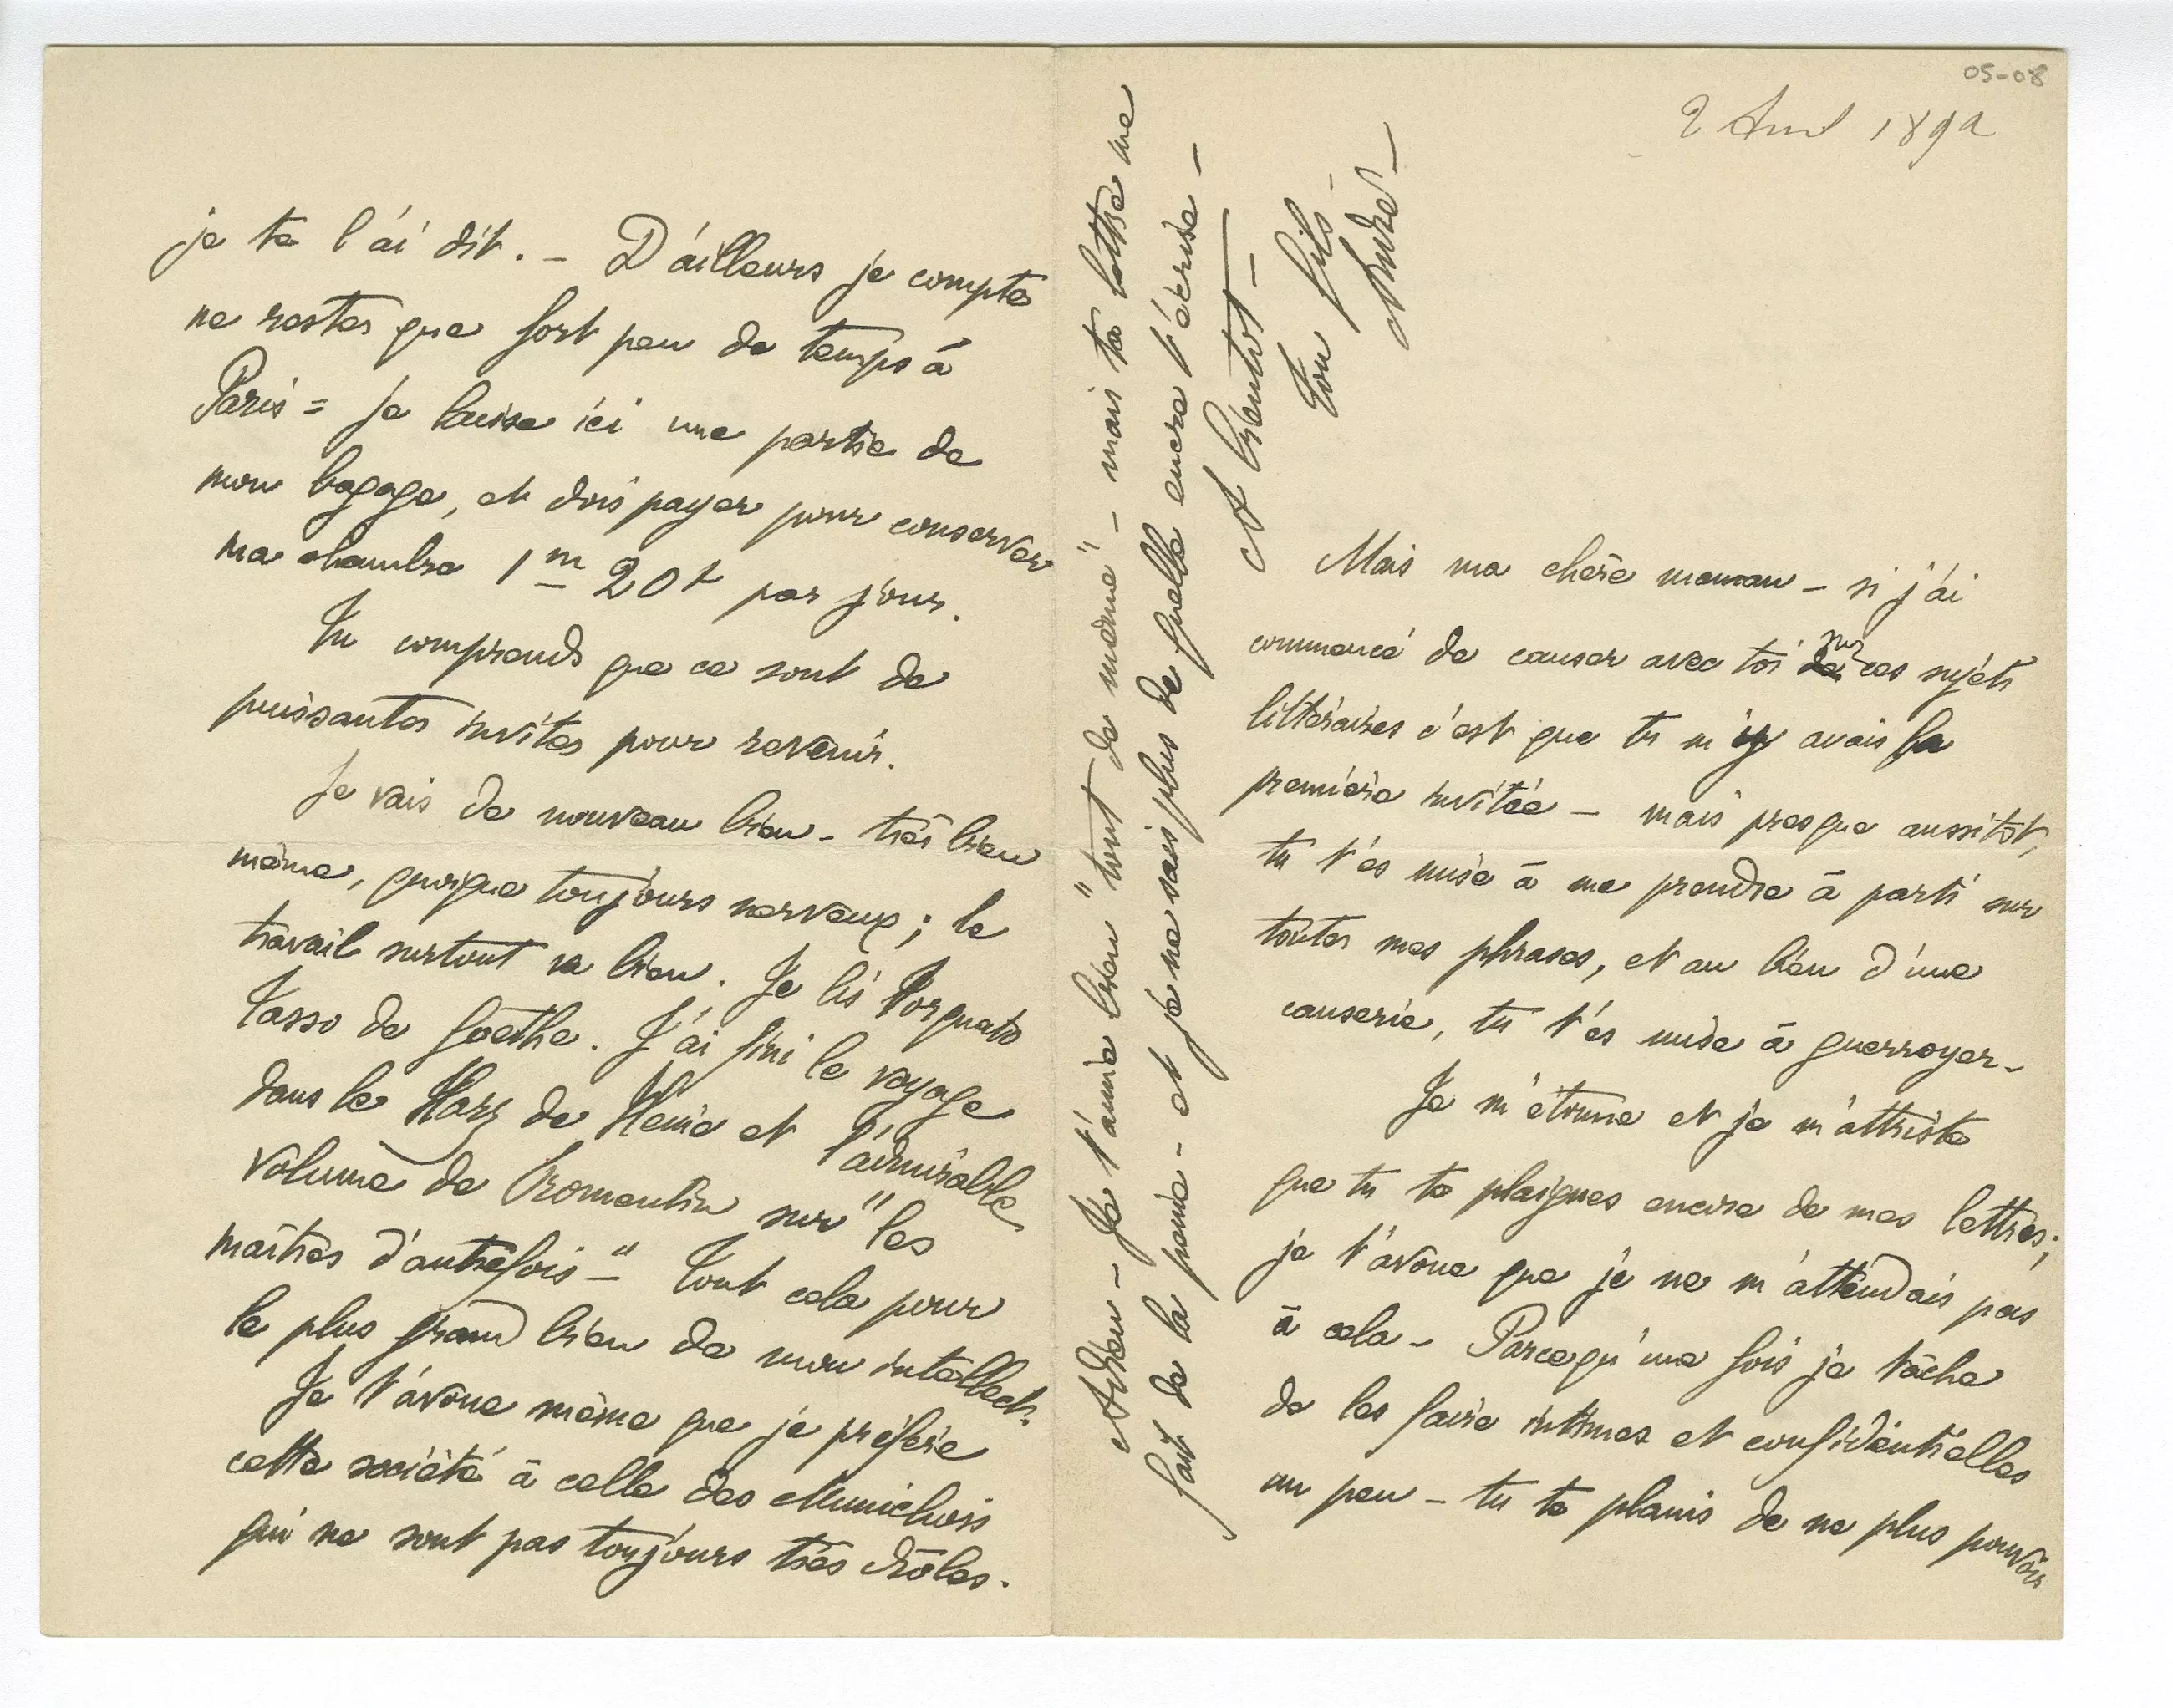 05-08
2 Avril 1892
Mais ma chère maman – si j'ai
commencé de causer avec toi de sur ces sujets
littéraires c'est que tu m'y avais la
première invitée – mais presque aussitôt,
tu t'es mise à me prendre à parti sur
toutes mes phrases, et au lieu d'une
causerie, tu t'es mise à guerroyer –
Je m'étonne et je m'attriste
que tu te plaignes encore de mes lettres;
je t'avoue que je ne m'attendais pas
à cela – Parcequ'une fois je tâche
de les faire intimes et confidentielles
un peu – tu te plains de ne plus pouvoir
je te l'ai dit. – D'ailleurs je compte
ne rester que fort peu de temps à
Paris = je laisse ici une partie de
mon bagage, et dois payer pour conserver
ma chambre 1m 20f par jour.
Tu comprends que ce sont de
puissantes invites pour revenir.
Je vais de nouveau bien – très bien
même, quoique toujours nerveux; le
travail surtout va bien. Je lis Torquato
Tasso de Goethe. J'ai fini le voyage
dans le Harz de Heine et l'admirable
volume de Fromentin sur "les
maîtres d'autrefois –" Tout cela pour
le plus grand bien de mon intellect.
Je t'avoue même que je préfère
cette société à celle des Munichois
qui ne sont pas toujours très drôles.
Adieu – Je t'aime bien "tout de même" – mais ta lettre me
fait de la peine – et je ne sais plus de quelle encre t'écrire –
A bientôt –
Ton fils –
André –